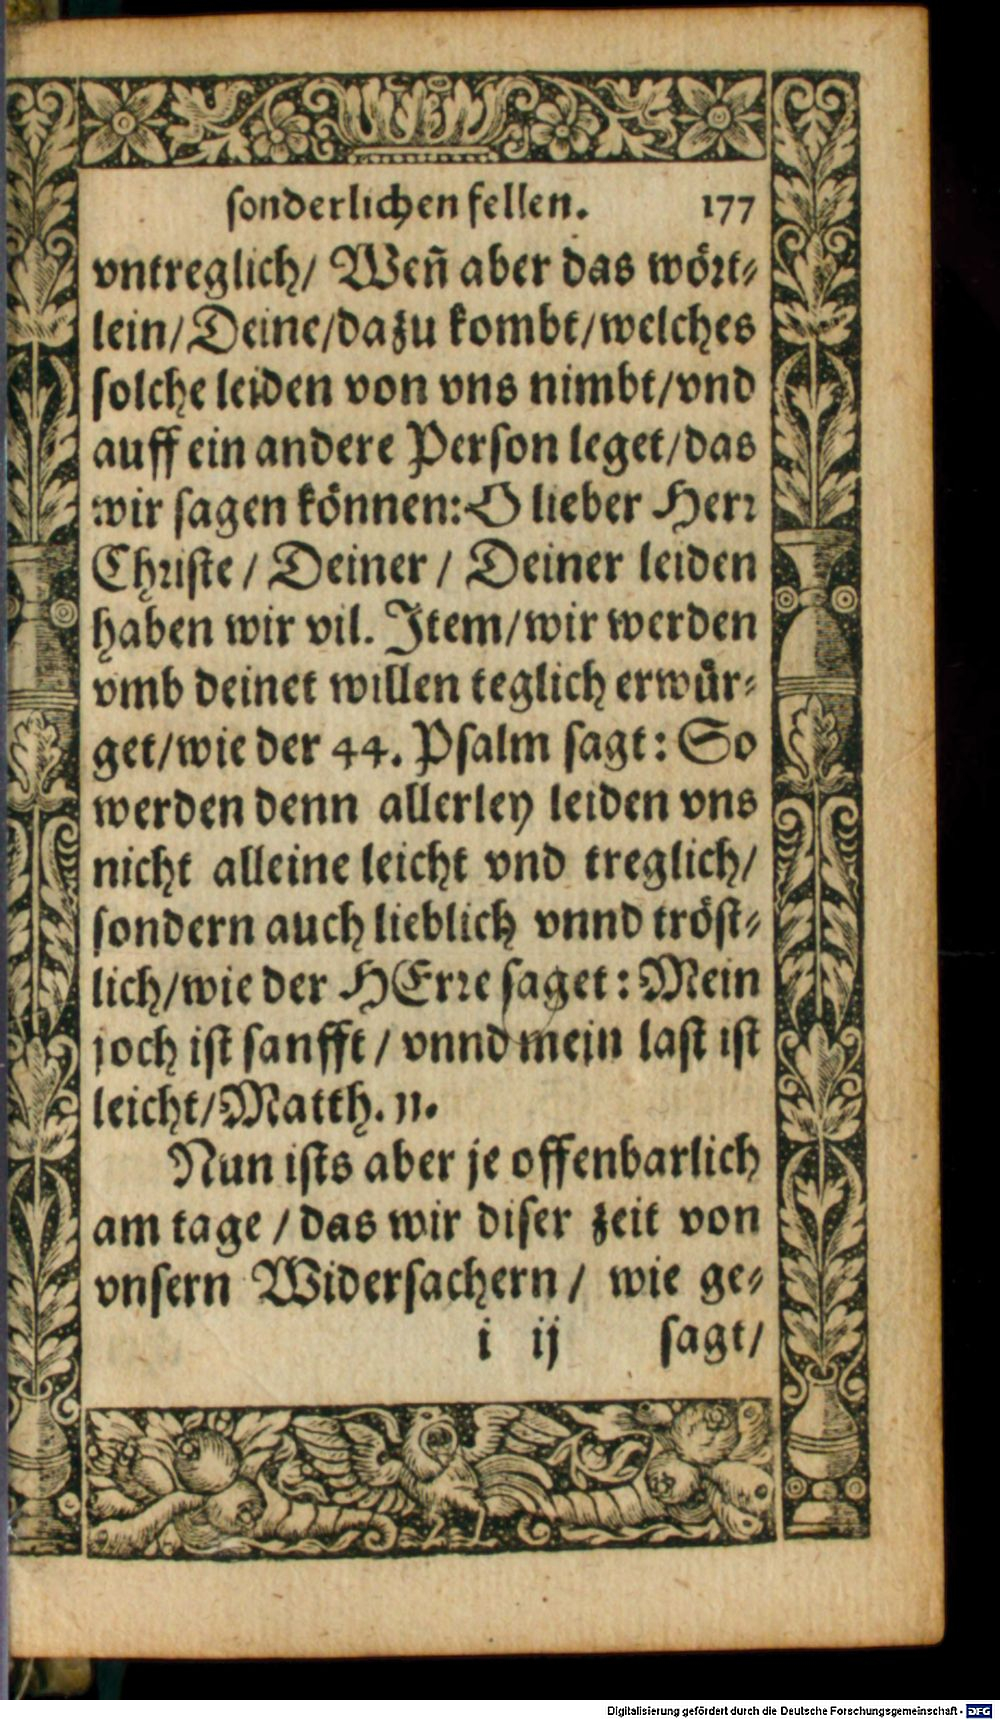 sonderlichen fellen. 177
vntreglich/ Weñ aber das wört-
lein/ Deine/dazu kombt/welches
solche leiden von vns nimbt/vnd
auff ein andere Person leget/das
wir sagen können: O lieber Herr
Christe / Deiner / Deiner leiden
haben wir vil. Item/wir werden
vmb deinet willen teglich erwür-
get/wie der 44. Psalm sagt: So
werden denn allerley leiden vns
nicht alleine leicht vnd treglich/
sondern auch lieblich vnnd tröst-
lich/wie der HErre saget: Mein
joch ist sanfft / vnnd mein last ist
leicht/Matth. 11.
Nun ists aber je offenbarlich
am tage / das wir diser zeit von
vnsern Widersachern / wie ge-
i ij sagt/
Digitalisierung gefördert durch die Deutsche Forschungsgemeinschaft - DFG